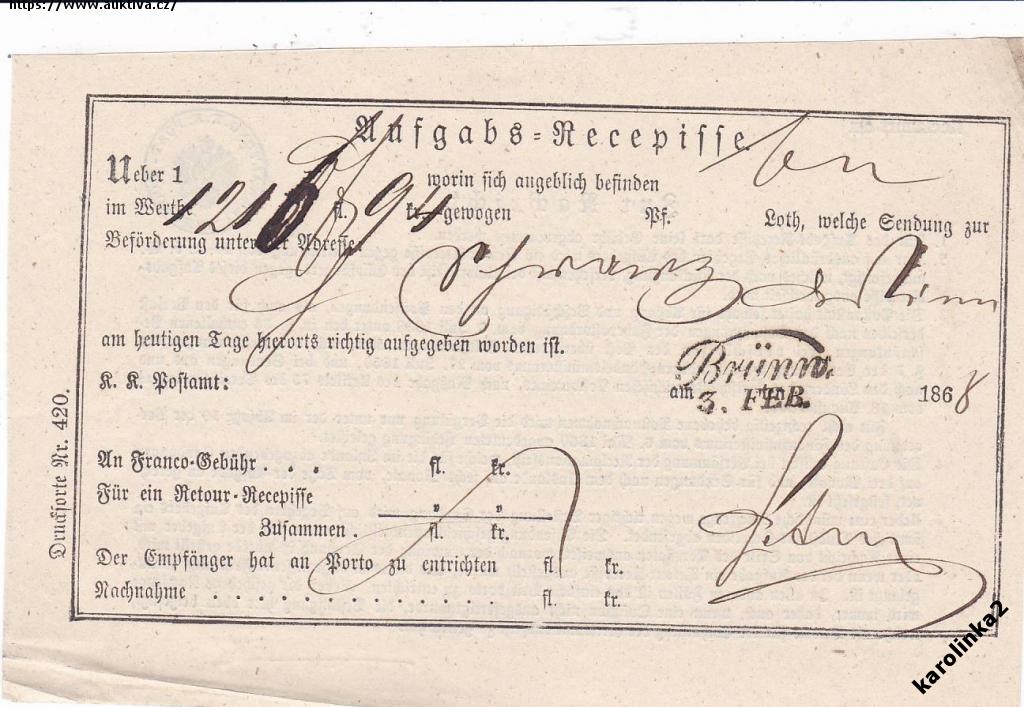 https://www.auktiva.cz/
Aufgabs-Recepisse
Ueber 1 worin sich angeblich befinden
im Werthe 1216 fl. 94 kr. gewogen Pf. Loth, welche Sendung zur
Beförderung unter der Adresse:
Schwarz
am heutigen Tage hierorts richtig aufgegeben worden ist.
Brünn.
K. K. Postamt: am 3. FEB. 1868
An Franco-Gebühr . . . fl. kr.
Für ein Retour-Recepisse " "
Zusammen . fl. kr.
Der Empfänger hat an Porto zu entrichten fl. kr.
Nachnahme . . . . . . . . . . . . fl. kr.
Drucksorte Nr. 420.
karolinka2